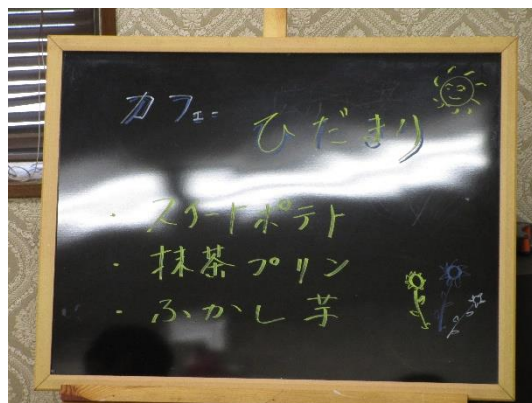 カフェー
ひだまり
・スイートポテト
・抹茶プリン
・ふかし芋